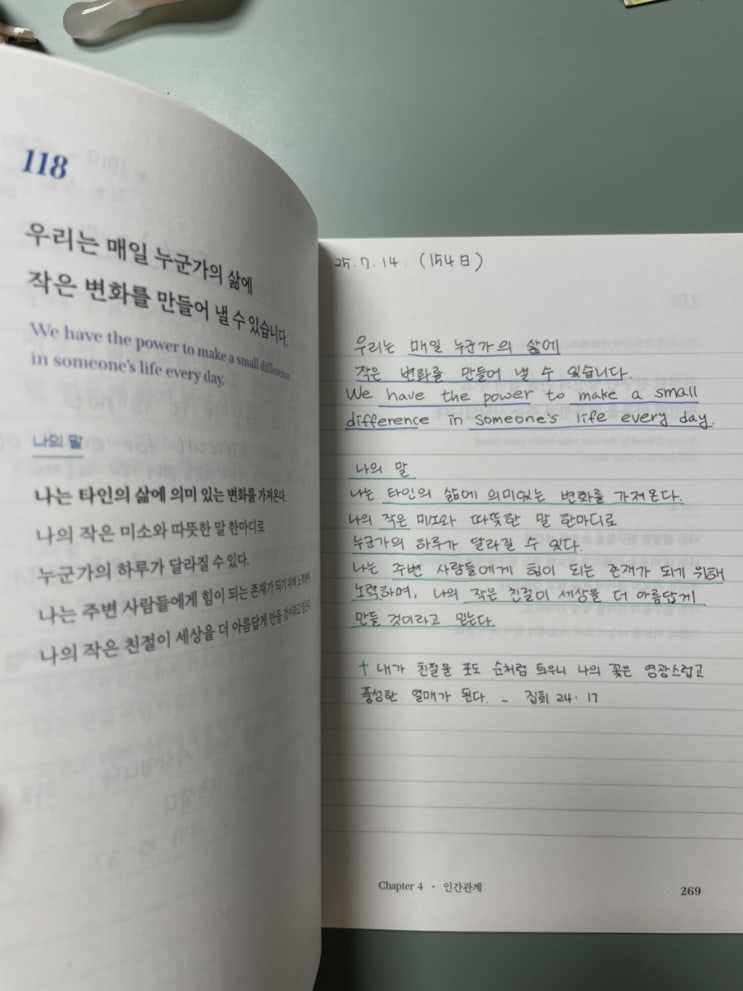 118
우리는 매일 누군가의 삶에
작은 변화를 만들어 낼 수 있습니다.
We have the power to make a small difference
in someone's life every day.
나의 말
나는 타인의 삶에 의미 있는 변화를 가져온다.
나의 작은 미소와 따뜻한 말 한마디로
누군가의 하루가 달라질 수 있다.
나는 주변 사람들에게 힘이 되는 존재가 되기 위해 노력하며
나의 작은 친절이 세상을 더 아름답게 만들 것이라고 믿는다
25. 7. 14. (154日)
우리는 매일 누군가의 삶에
작은 변화를 만들어 낼 수 있습니다.
We have the power to make a small
difference in someone's life every day.
나의 말
나는 타인의 삶에 의미있는 변화를 가져온다.
나의 작은 미소와 따뜻한 말 한마디로
누군가의 하루가 달라질 수 있다.
나는 주변 사람들에게 힘이 되는 존재가 되기 위해
노력하며, 나의 작은 친절이 세상을 더 아름답게
만들 것이라고 믿는다.
+ 내가 친절을 포도 순처럼 틔우니 나의 꽃은 영광스럽고
풍성한 열매가 된다. - 집회 24: 17
Chapter 4 · 인간관계
269